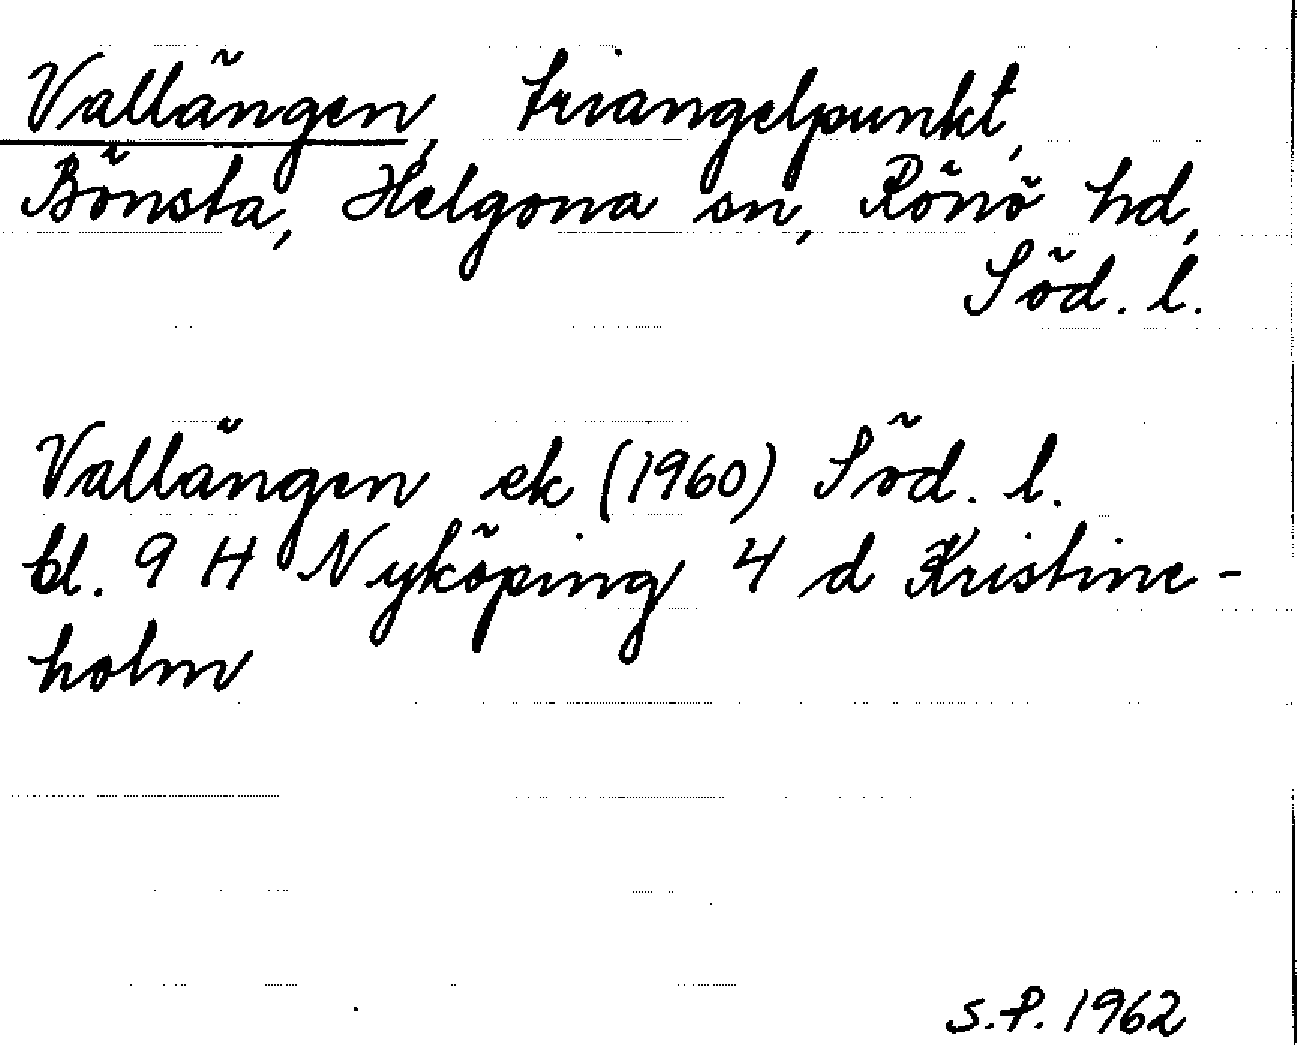 Vallängen, triangelpunkt,
Bönsta, Helgona sn, Rönö hd,
Söd. l.
Vallängen ek (1960) Söd. l.
bl. 9 H Nyköping 4 d Kristine-
holm
S.P. 1962